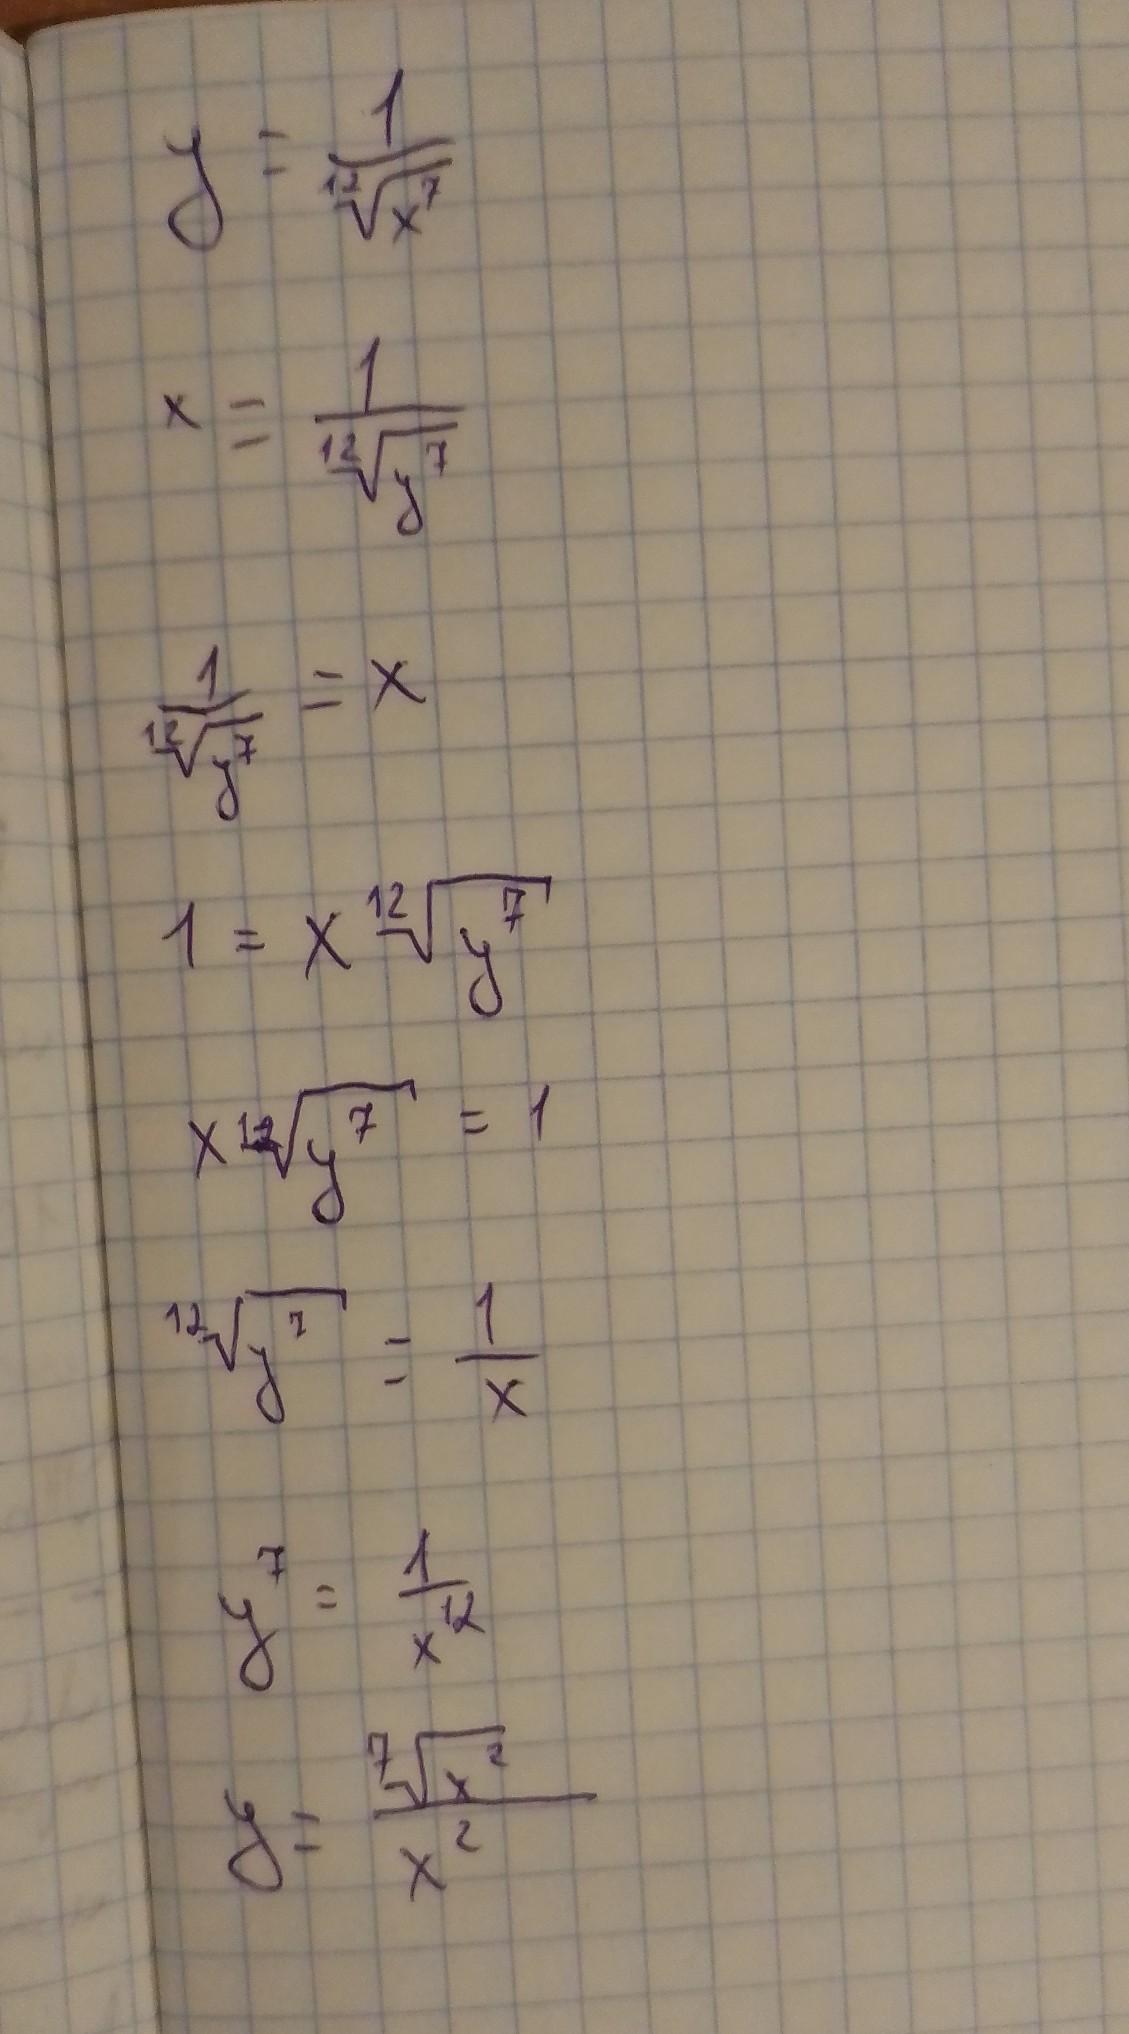 y = 1/¹²√x⁷
x = 1/¹²√y⁷
1/¹²√y⁷ = x
1 = x ¹²√y⁷
x ¹²√y⁷ = 1
¹²√y⁷ = 1/x
y⁷ = 1/x¹²
y = ⁷√x²/x²